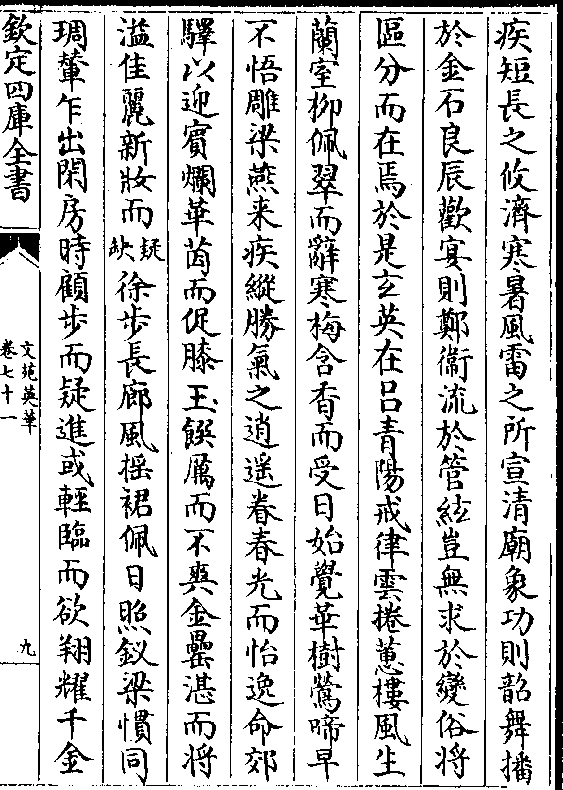 疾短長之攸濟寒暑風雷之所宣清廟象功則韶舞播
於金石良辰歡宴則鄭衞流於管絃豈無求於變俗將
區分而在焉於是玄英在吕青陽戒律雲捲蕙樓風生
蘭室柳佩翠而辭寒梅含香而受日始覺華樹鶯啼早
不悟雕梁燕来疾縱勝氣之逍遥眷春光而怡逸命郊
驛以迎賓爛華茵而促膝玉饌厲而不爽金罍湛而將
溢佳麗新妝而疑缺徐步長廊風揺裙佩日照釵梁慣同
琱輦乍出閑房時顧步而疑進或輕臨而欲翔耀千金
欽定四庫全書
文苑英華
卷七十一
九